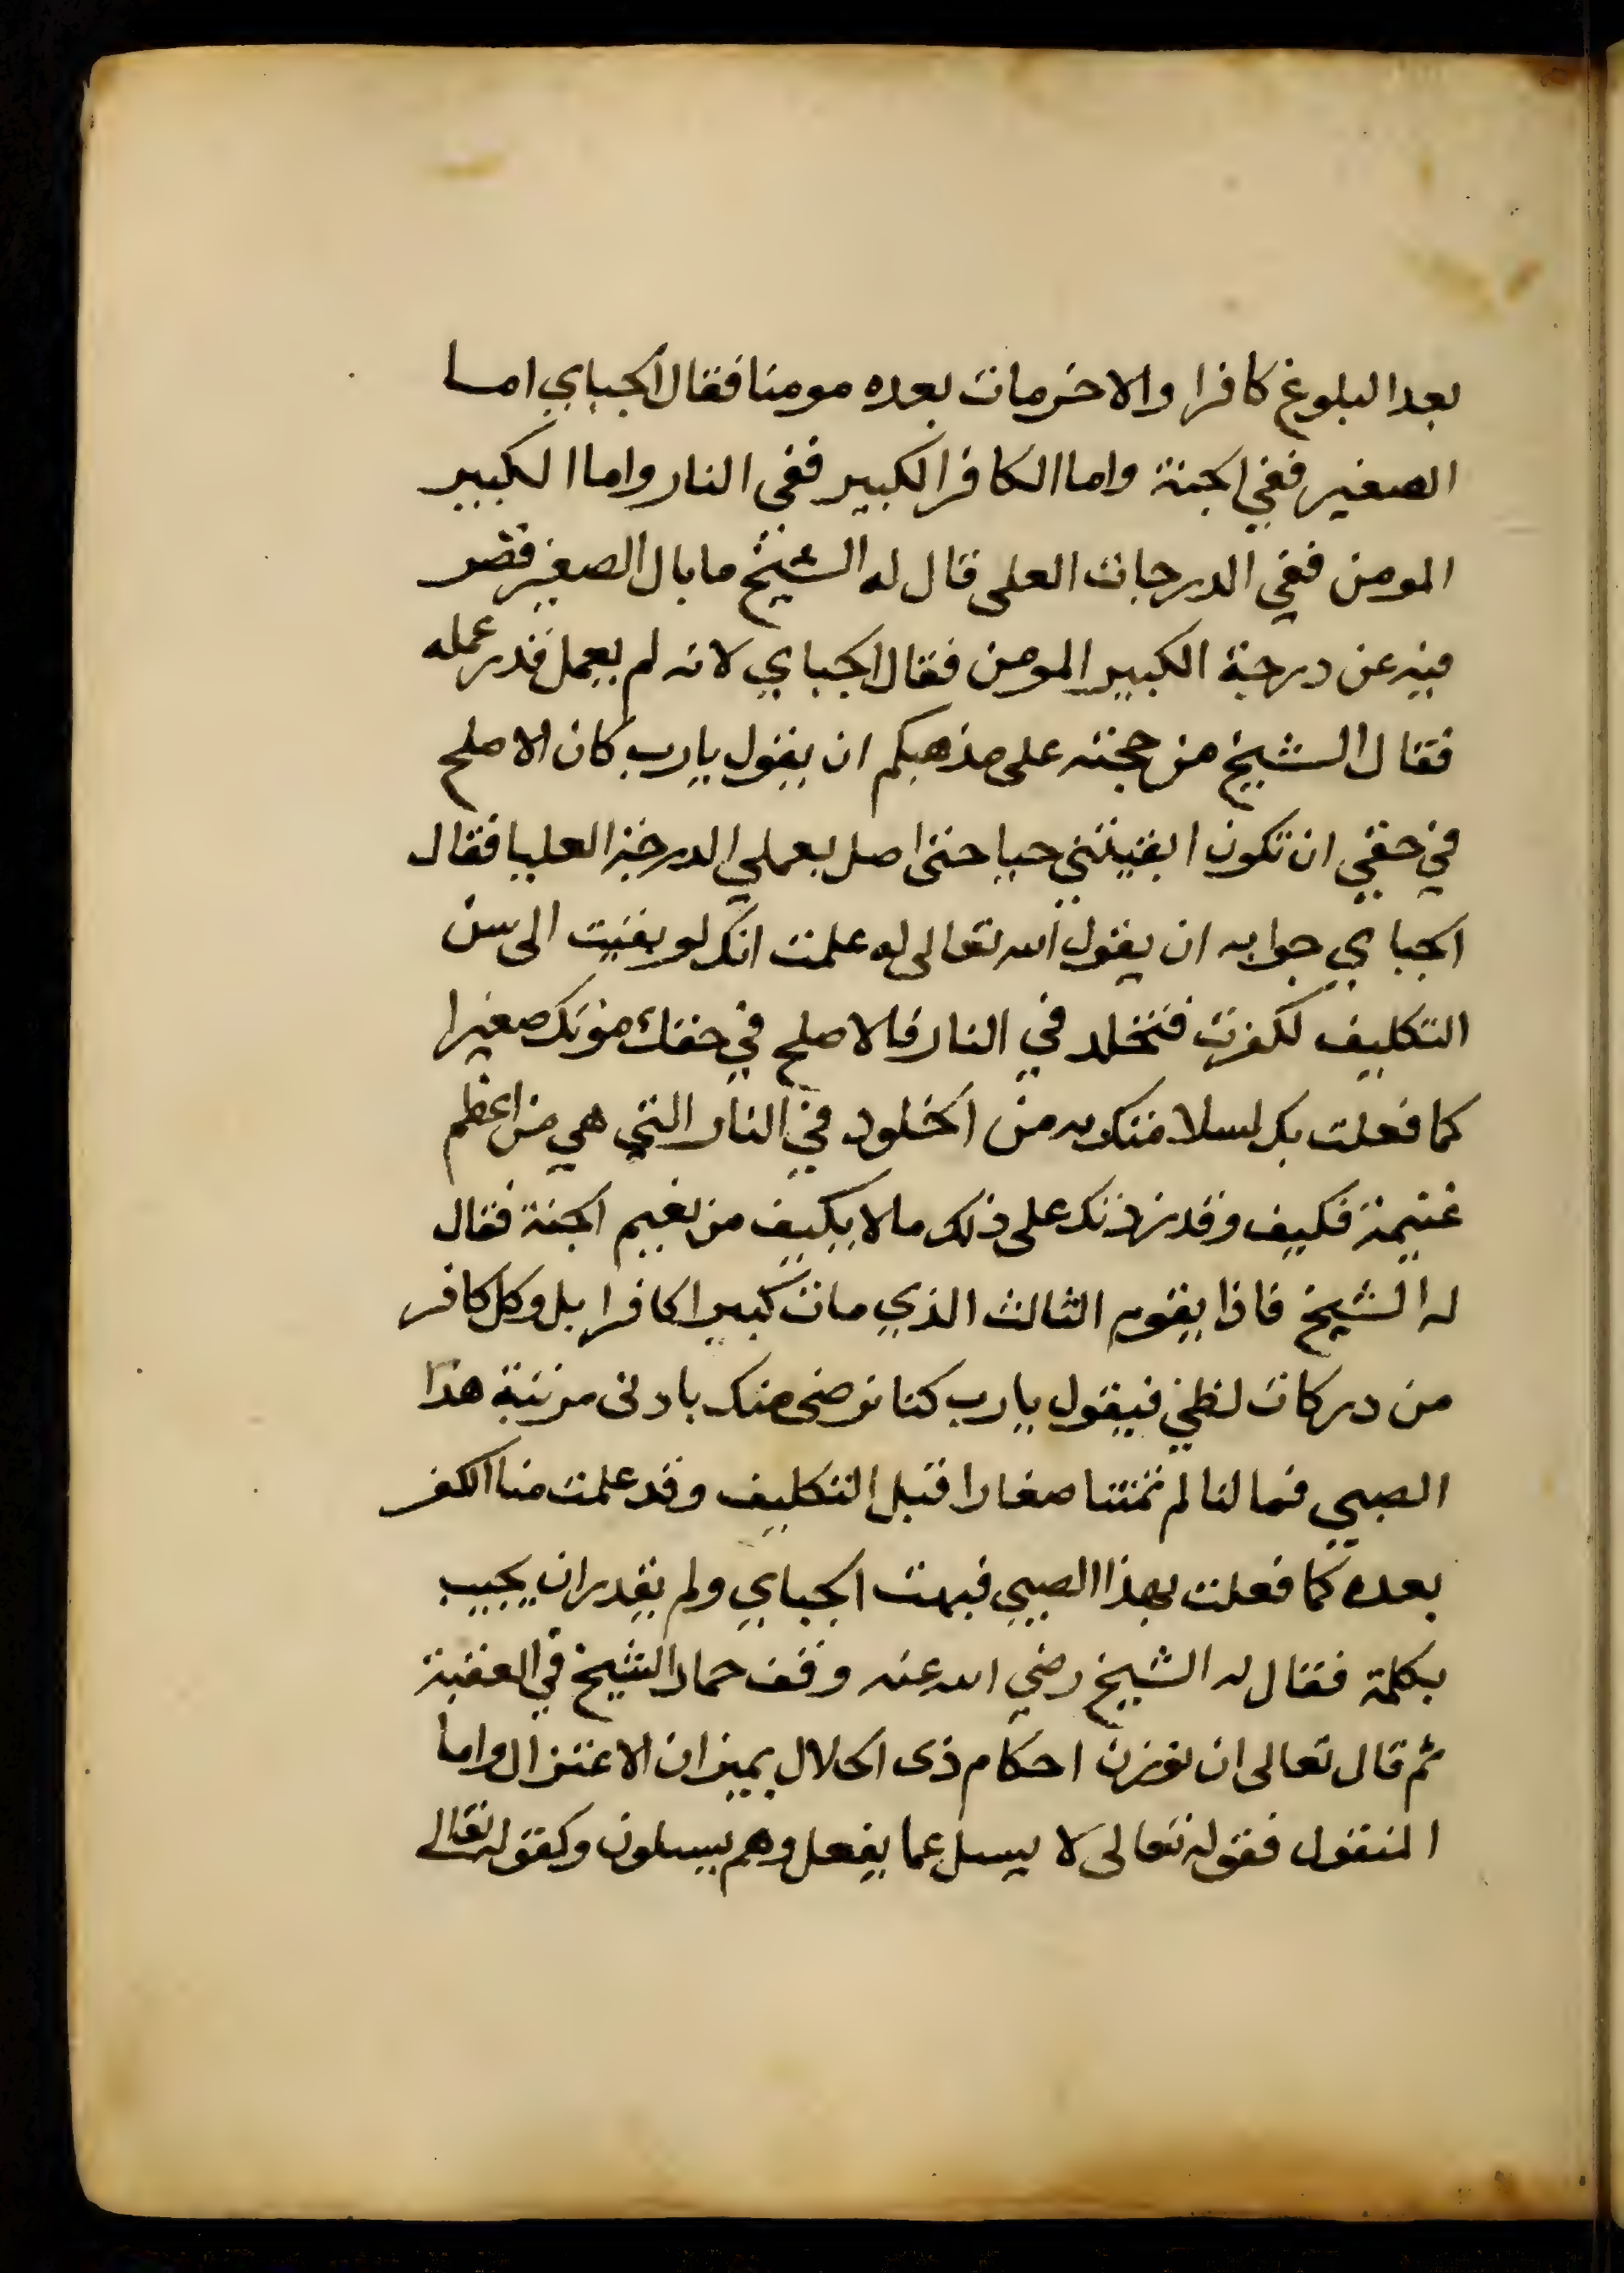 بعد البلوغ كافرا والاخر مات بعده مومنا فقال الجباي اما
الصغير ففي الجنة واما الكافر الكبير ففى النار واما الكبير
المومن ففي الدرجات العلى قال له الشيخ ما بال الصغير قصر
فيه عن درجة الكبير المومن فقال الجباي لانه لم يعمل قدر عمله
فقال الشيخ من حجته على مذهبكم ان يقول يا رب كان الاصلح
في حقي ان تكون ابقيتني حيا حتى اصل بعملي الدرجة العليا فقال
الجباي جوابه ان يقول الله تعالى له علمت انك لو بقيت الى سن
التكليف لكفرت فتخلد في النار فالاصلح في حقك موتك صغيرا
كما فعلت بك لسلامتك به من الخلود في النار التي هي من اعظم
غنيمة فكيف وقد زدتك على ذلك ما لا يكيف من نعيم الجنة فقال
له الشيخ فاذا يقوم الثالث الذي مات كبيرا كافرا بل وكل كافر
من دركات لظي فيقول يا رب كنا نرضى منك بادنى مرتبة هذا
الصبي فما لنا لم تمتنا صغارا قبل التكليف وقد علمت منا الكفر
بعده كما فعلت بهذا الصبي فبهت الجباي ولم يقدر ان يجيب
بكلمة فقال له الشيخ رضي الله عنه وقف حمار الشيخ في العقبة
ثم قال تعالى ان توزن احكام ذى الجلال بميزان الاعتزال واما
المنقول فقوله تعالى لا يسل عما يفعل وهم يسلون وكقوله تعالى